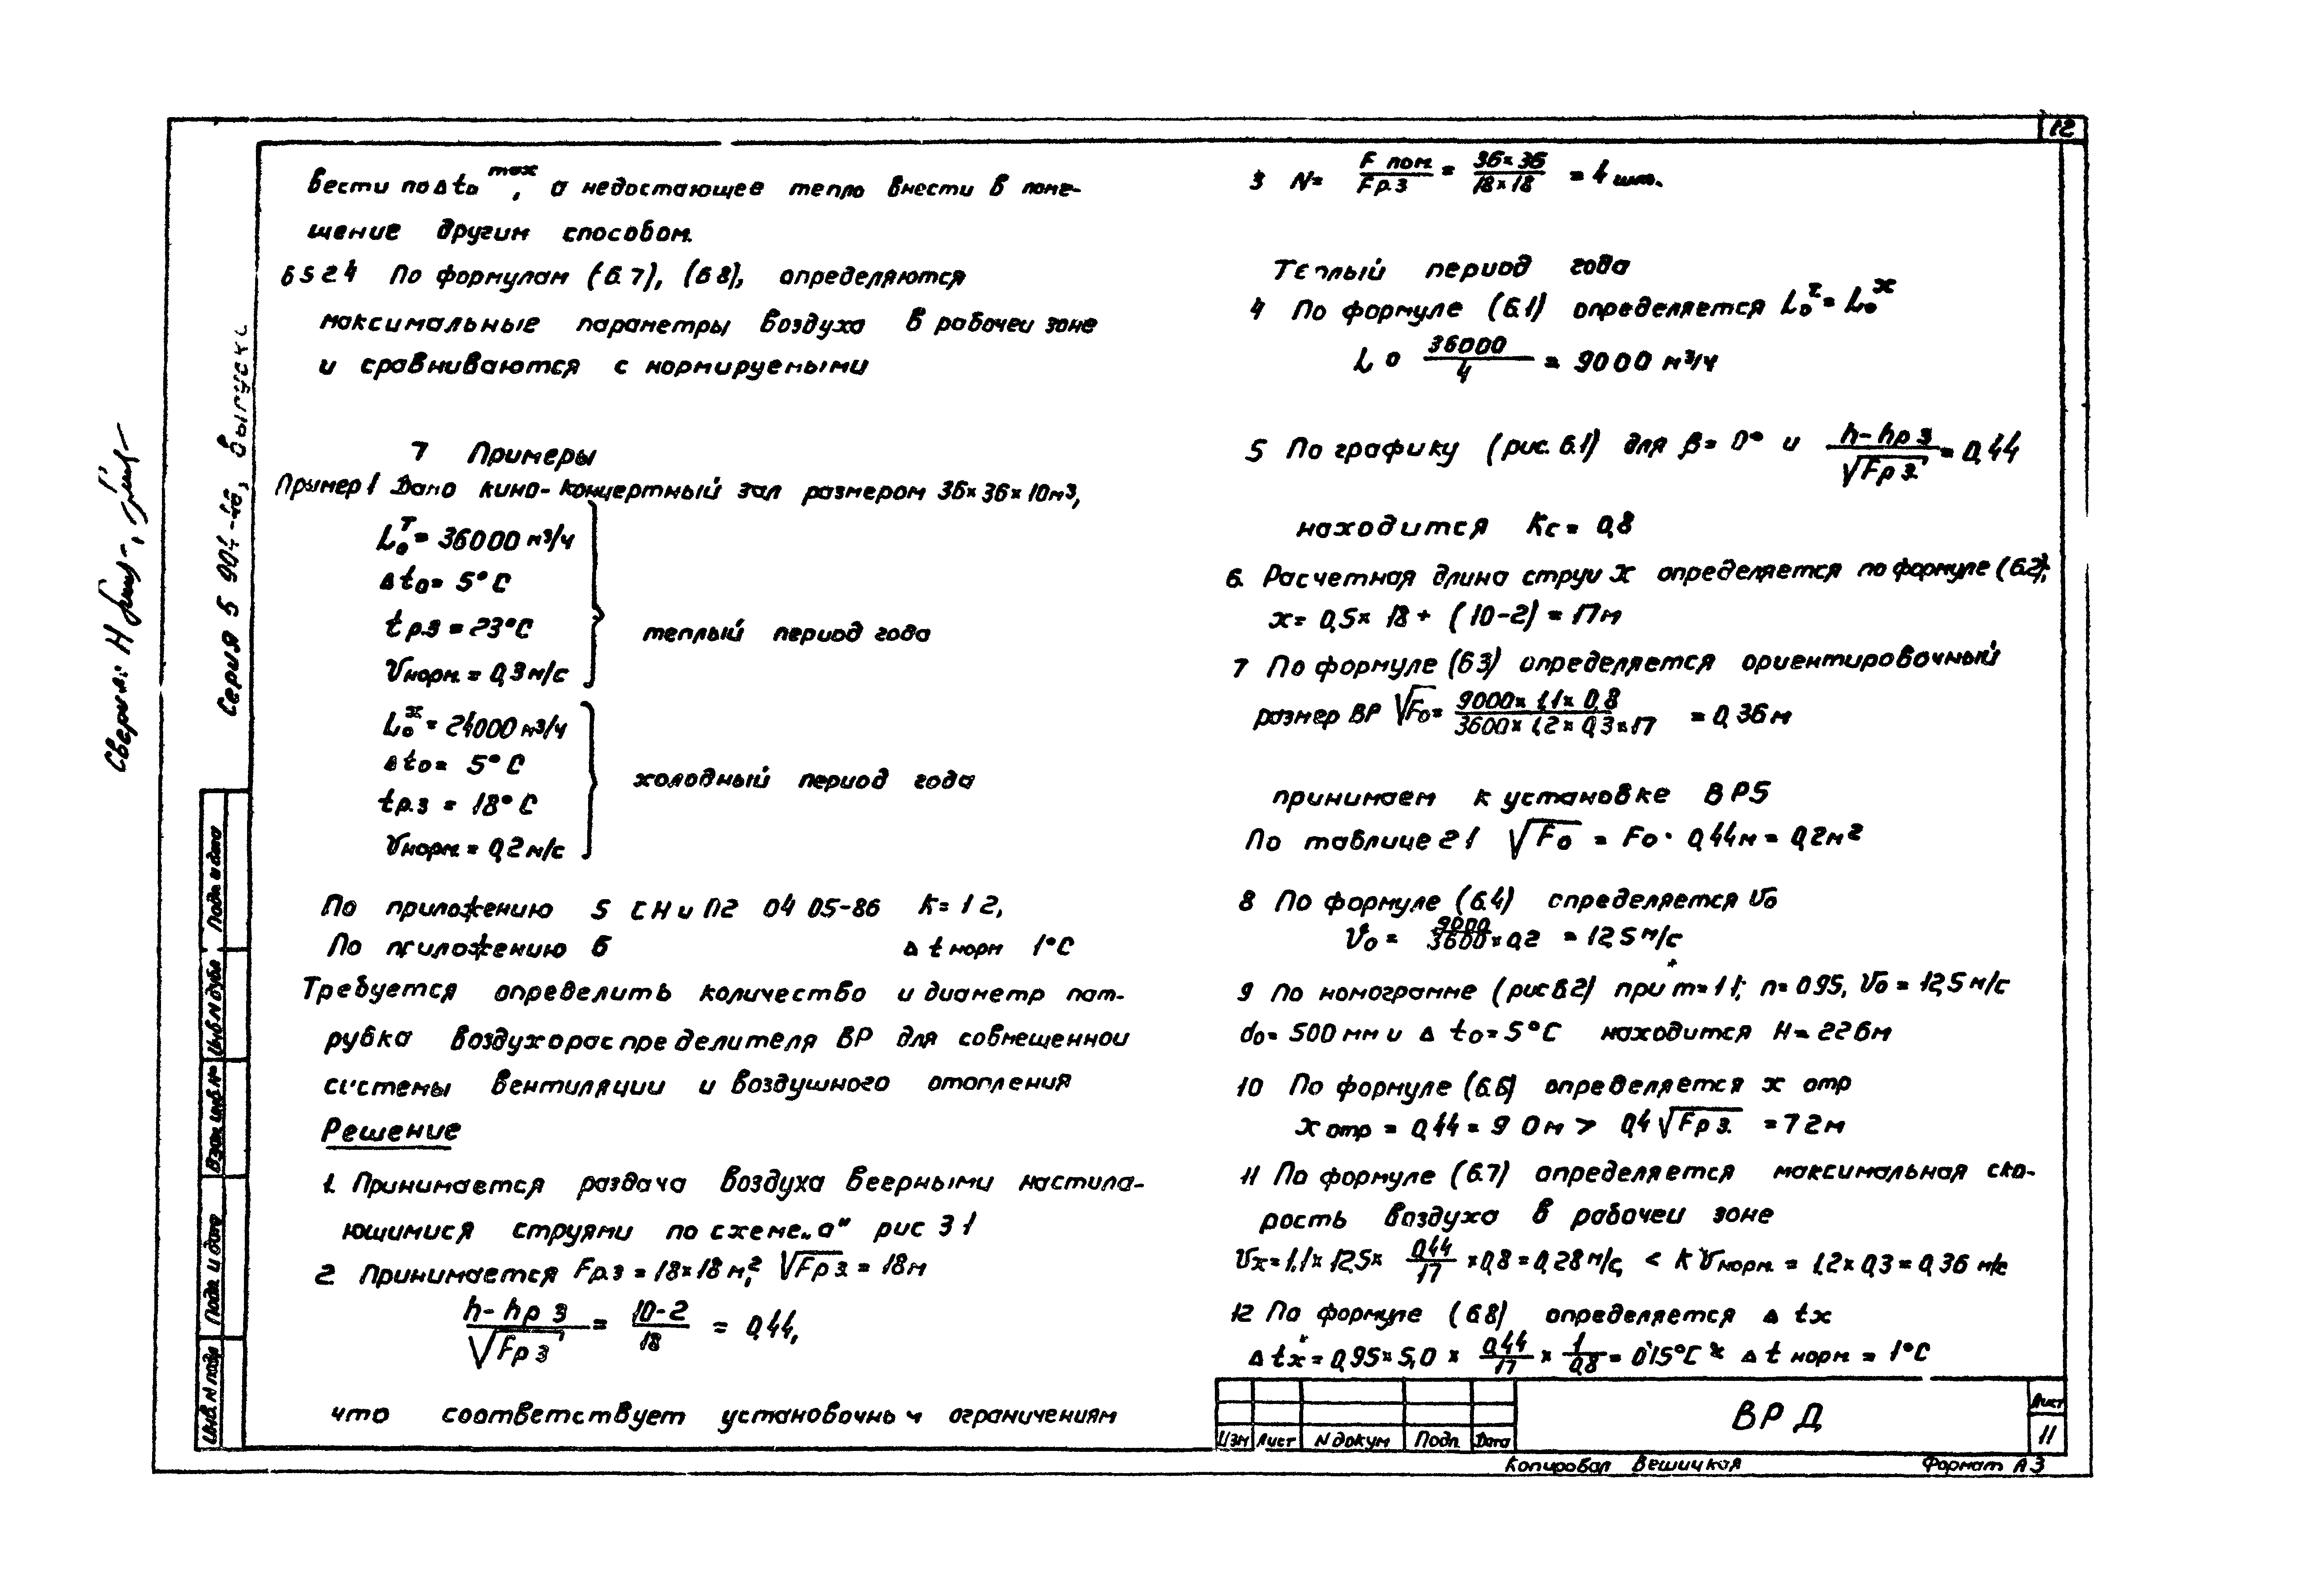 12
вести по Δt₀ max, а недостающее тепло внести в поме-
щение другим способом.
6 5 2 4 По формулам (6.7), (6 8), определяются
максимальные параметры воздуха в рабочей зоне
и сравниваются с нормируемыми
7 Примеры
Пример 1 Дано кино-концертный зал размером 36×36×10м³,
L₀ᵀ = 36000 м³/ч
Δt₀= 5°С
tр.з = 23°С
Vнорм. = 0,3 м/с
теплый период года
L₀ˣ = 24000 м³/ч
Δt₀= 5°С
tр.з = 18°С
Vнорм. = 0,2 м/с
холодный период года
По приложению 5 СНиП2 04 05-86 К= 1 2,
По приложению 6 Δ t норм 1°С
Требуется определить количество и диаметр пат-
рубка воздухораспределителя ВР для совмещенной
системы вентиляции и воздушного отопления
Решение
1. Принимается раздача воздуха веерными настила-
ющимися струями по схеме „а" рис 3 1
2 Принимается Fр.з = 18×18 м², √Fр з. = 18м
h- hр з / √Fр з = 10-2 / 18 = 0,44,
что соответствует установочным ограничениям
3 N= F пом. / Fр.з = 36×36 / 18×18 = 4 шт.
Теплый период года
4 По формуле (6.1) определяется L₀ᵀ= L₀ˣ
L 0 36000 / 4 = 9000 м³/ч
5 По графику (рис. 6.1) для β= 0° и h- hр з / √Fр з. = 0,44
находится Кс = 0,8
6. Расчетная длина струи х определяется по формуле (6.2);
х= 0,5× 18 + (10-2) = 17м
7 По формуле (6 3) определяется ориентировочный
размер ВР √F₀= 9000× 1,1× 0,8 / 3600× 1,2 × 0,3×17 = 0,36м
принимаем к установке ВР5
По таблице 2 1 √F₀ = F₀· 0,44м = 0,2м²
8 По формуле (6.4) определяется V₀
V₀ = 9000 / 3600 × 0,2 = 12 5 м/с
9 По номограмме (рис 6.2) при m= 1 1; n= 0 95, V₀ = 12,5 м/с
d₀= 500 мм и Δ t₀= 5°С находится Н= 22 6м
10 По формуле (6.6) определяется х отр
х отр = 0,44 = 9 0м > 0,4 √Fр з. = 7 2м
11 По формуле (6.7) определяется максимальная ско-
рость воздуха в рабочей зоне
Vх= 1,1× 12,5× 0,44 / 17 ×0,8 = 0,28 м/с, < К Vнорм. = 1,2× 0,3 = 0,36 м/с
12 По формуле (6.8) определяется Δ tх
Δ tх = 0,95×5,0 × 0,44 / 17 × 1 / 0,8 = 0 15°С < Δ t норм. = 1°С
Изм Лист N докум Подп. Дата
ВР Д
Лист
11
Копировал Вешицкая Формат А3
Серия 5 904-, Выпуск
Сверил:
Подп. и дата
Инв N дубл
Взам инв №
Подп. и дата
Инв. N подл